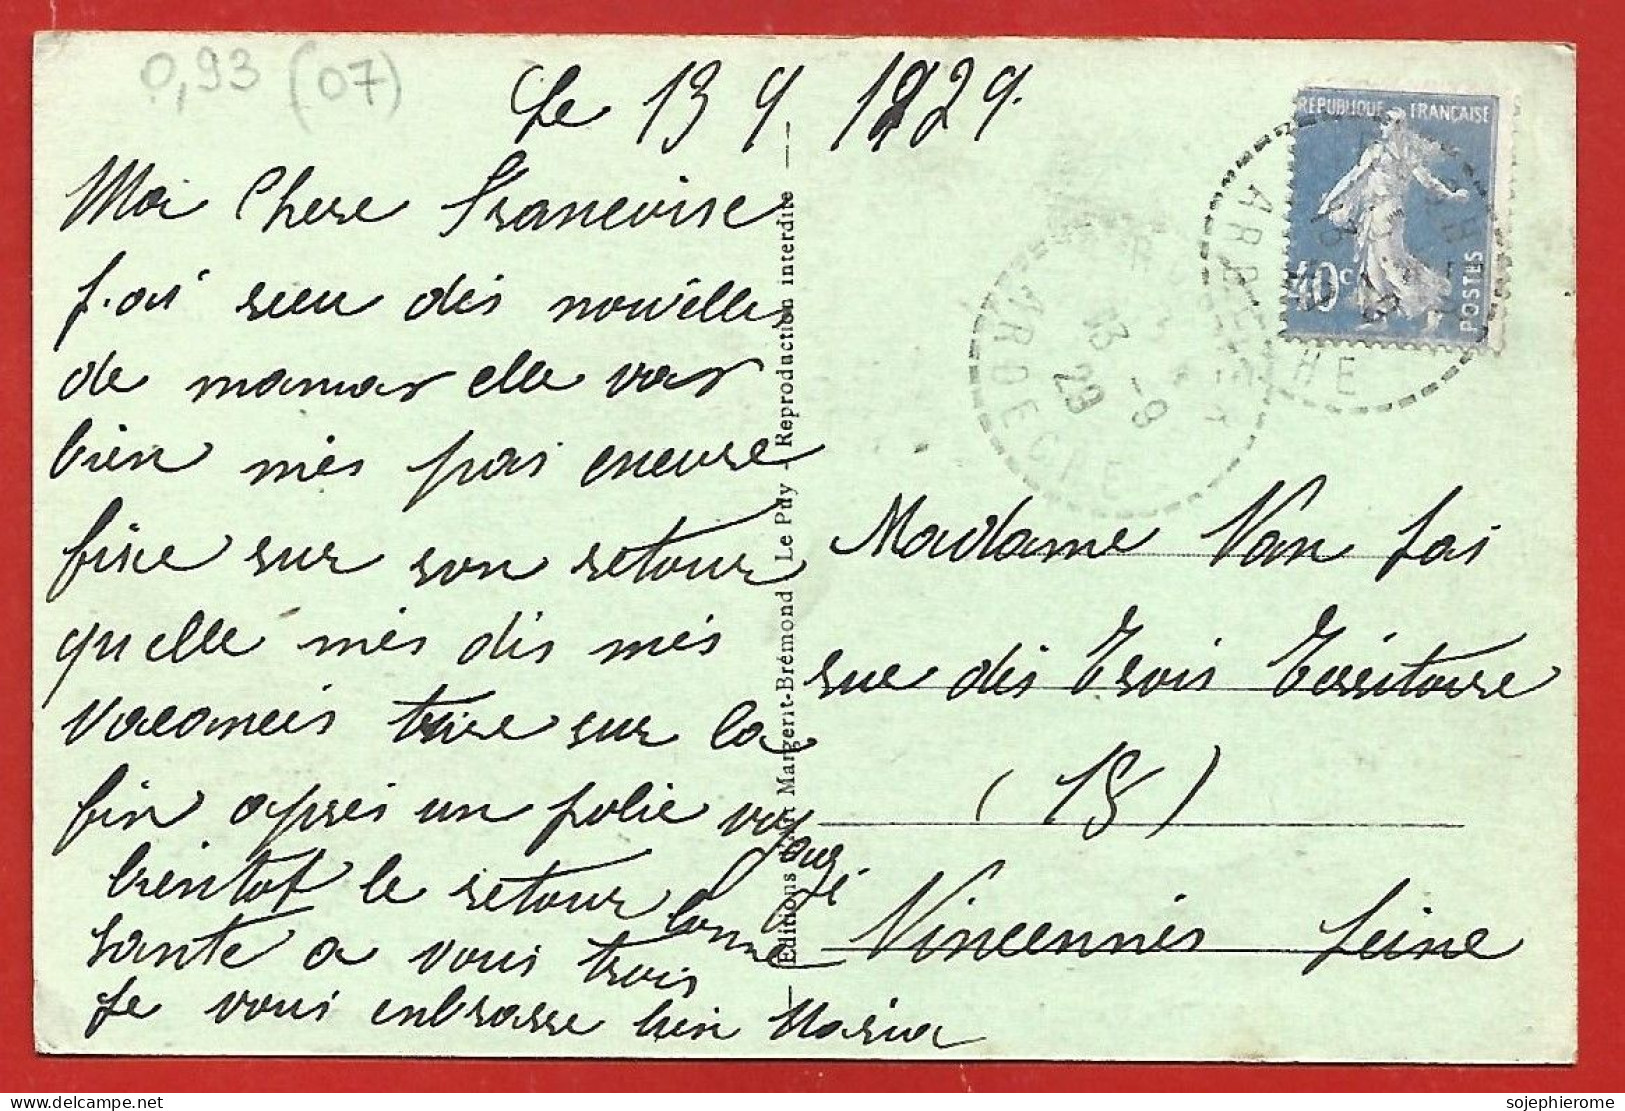 0,93 (07)
Le 13 9 1929.
Moi Chere Francoise
j.ai recu des nouvelles
de maman elle vas
bien mes pas encore
fixe sur son retour
qu elle mes dis mes
vacances tire sur la
fin apres un jolie voyage
bientot le retour bonne
sante a vous trois
Je vous enbrasse bien Maria
Editions Margerit-Brémond Le Puy - Reproduction interdite
REPUBLIQUE FRANÇAISE
40c
POSTES
ARDECHE
13 -9
29
ARDECHE
Madame Van
rue des Trois Territoire
(15)
Vincennes Seine
sojephierome